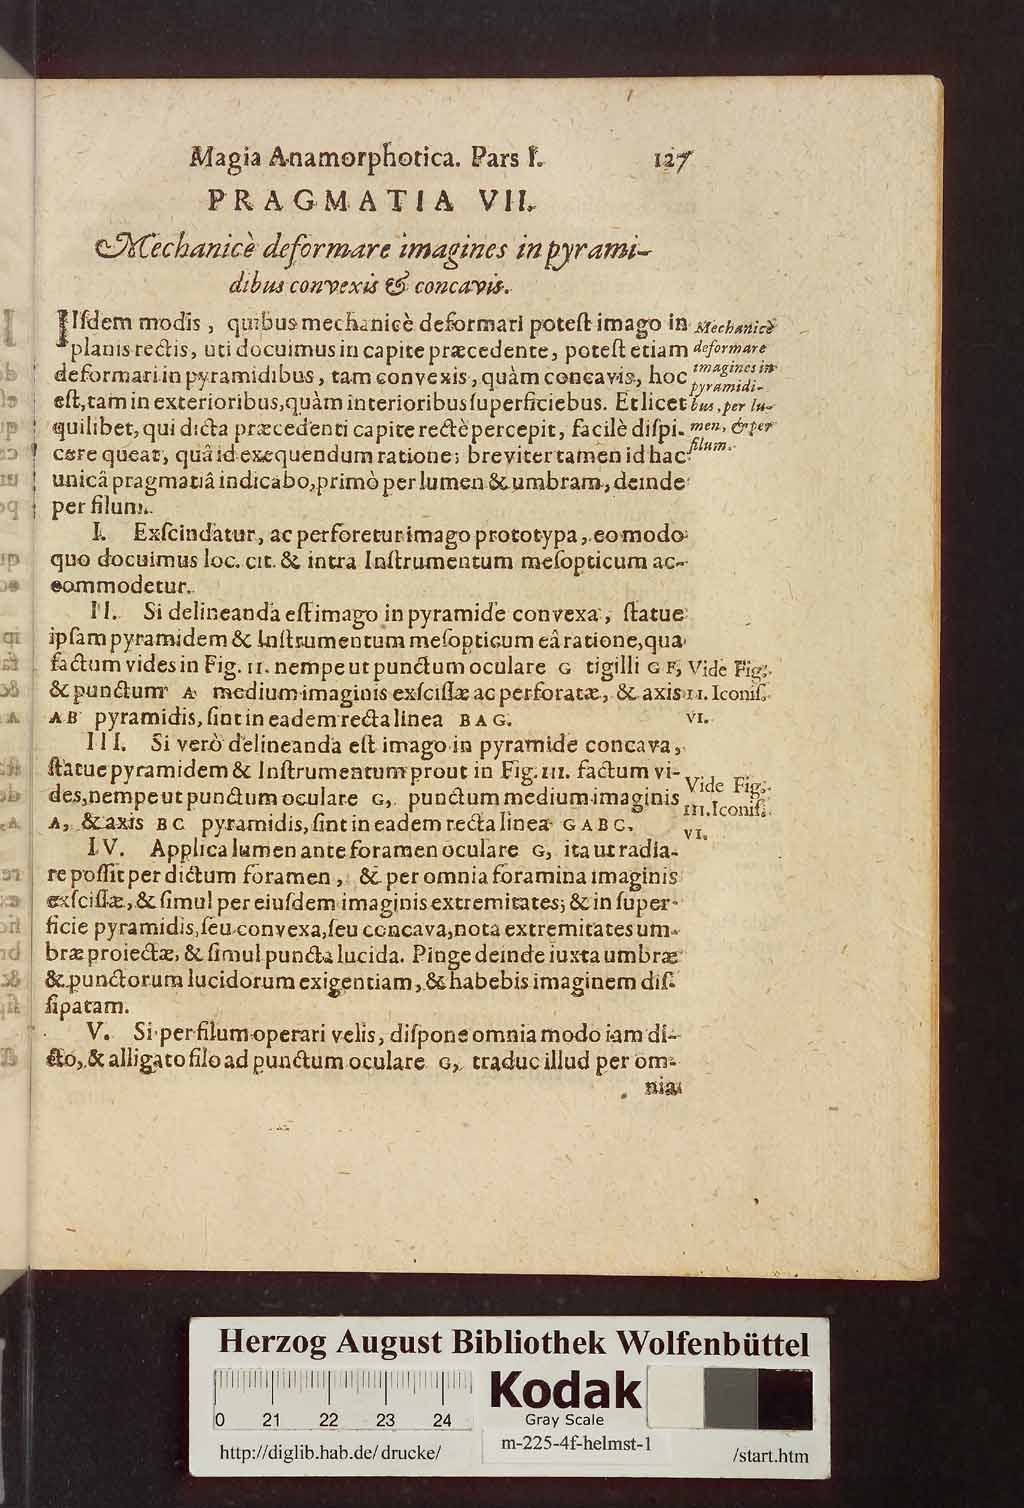 Magia Anamorphotica. Pars I. 127
PRAGMATIA VII.
Mechanicè deformare imagines in pyrami-
dibus convexis & concavis.
IIſdem modis, quibus mechanicè deformari poteſt imago in
planis rectis, uti docuimus in capite præcedente, poteſt etiam
deformari in pyramidibus, tam convexis, quàm concavis, hoc
eſt, tam in exterioribus, quàm interioribus ſuperficiebus. Et licet
quilibet, qui dicta præcedenti capite rectè percepit, facilè diſpi-
cere queat, quâ id exequendum ratione; breviter tamen id hac
unicâ pragmatiâ indicabo, primò per lumen & umbram, deinde
per filum.
Mechanicè
deformare
imagines in
pyramidi-
bus, per lu-
men, & per
filum.
I. Exſcindatur, ac perforetur imago prototypa, eo modo
quo docuimus loc. cit. & intra Inſtrumentum meſopticum ac-
commodetur.
II. Si delineanda eſt imago in pyramide convexa, ſtatue
ipſam pyramidem & Inſtrumentum meſopticum eâ ratione, qua
factum vides in Fig. II. nempe ut punctum oculare G tigilli G F,
& punctum A medium imaginis exſciſſæ ac perforatæ, & axis
A B pyramidis, ſint in eadem recta linea B A G.
Vide Fig.
II. Iconiſ.
VI.
III. Si verò delineanda eſt imago in pyramide concava,
ſtatue pyramidem & Inſtrumentum prout in Fig. III. factum vi-
des, nempe ut punctum oculare G, punctum medium imaginis
A, & axis B C pyramidis, ſint in eadem recta linea G A B C.
Vide Fig.
III. Iconiſ.
VI.
IV. Applica lumen ante foramen oculare G, ita ut radia-
re poſſit per dictum foramen, & per omnia foramina imaginis
exſciſſæ, & ſimul per eiuſdem imaginis extremitates; & in ſuper-
ficie pyramidis, ſeu convexa, ſeu concava, nota extremitates um-
bræ proiectæ, & ſimul puncta lucida. Pinge deinde iuxta umbræ
& punctorum lucidorum exigentiam, & habebis imaginem diſ-
ſipatam.
V. Si per filum operari velis, diſpone omnia modo iam di-
cto, & alligato filo ad punctum oculare G, traduc illud per om-
nia
Herzog August Bibliothek Wolfenbüttel
0 21 22 23 24
Kodak
Gray Scale
http://diglib.hab.de/drucke/
m-225-4f-helmst-1
/start.htm